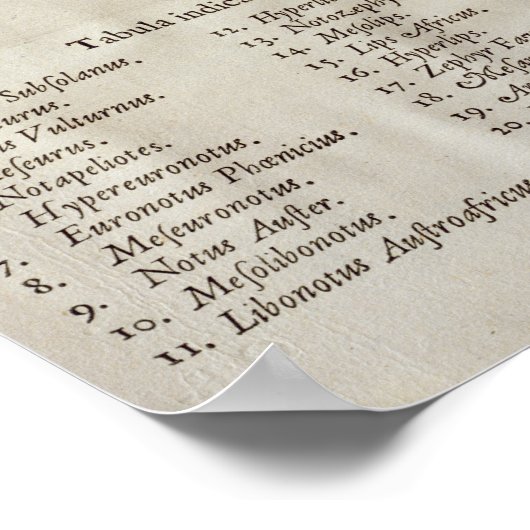 Tabula indica
Subſolanus.
Vulturnus.
Notapeliotes.
Hypereuronotus.
7. Euronotus Phœnicius.
8. Meſeuronotus.
9. Notus Auſter.
10. Meſolibonotus.
11. Libonotus Auſtroafricus
13. Notozephy
14. Meſolips.
15. Lips Africus.
16. Hyperlips.
17. Zephyr
18.
19.
20.